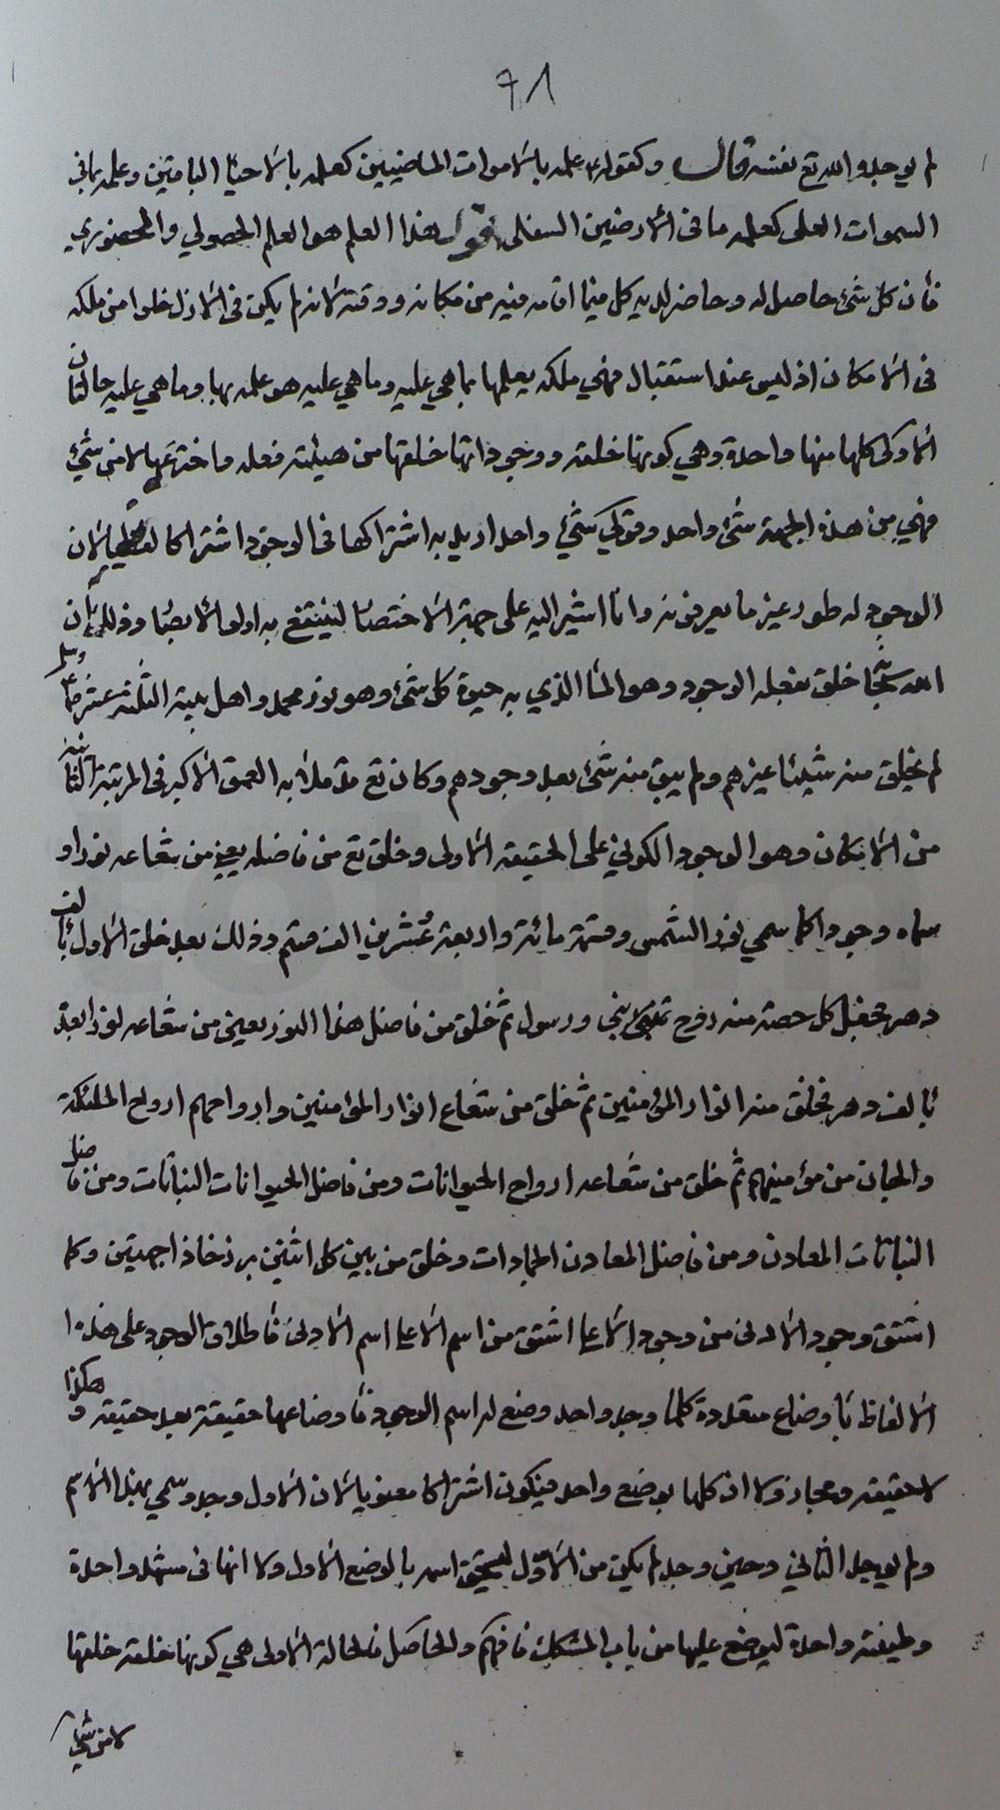 ٦٨
لم يوجدوا الله تع نفسه قال وكقوله ع علمه بالاموات الماضيين كعلمه بالاحيآء الباقين وعلمه بما في
السموات العلى كعلمه ما في الأرضين السفلى اقول هذا العلم هو العلم الحصولي والحضوري
فأن كل شئ حاصل له وحاضر لديه كل فيما اقامه فيه من مكانه ووقته لانه لم يكن في الازل خلوا من ملكه
في الامكان اذ ليس عند استقبال فهي ملكه يعلمها بما هي عليه وما هي عليه هو علمه بها وما هي عليه حالتان
الاولى كلها فيها واحدة وهي كونها خلقه ووجوداتها خلقها من هيئته فعله واخترعها لا من شئ
فهي من هذه الجهة شئ واحد وقولي شئ واحد اريد به اشتراكها في الوجود اشتراكا لفظيا لان
الوجود له طور غير ما يعرفونه وانا اشير اليه على جهة الاختصار لينتفع به اولوا الأبصار وذلك بأن
الله سبحانه خلق بفعله الوجود وهو المآء الذي به حيوة كل شئ وهو نور محمد واهل بيته الثلثة عشر ص ع وسلم
لم يخلق منه شيئا غيرهم ولم يبق منه شئ بعد وجودهم وكان تع قد ملأ به العمق الاكبر في المرتبة الثانية
من الامكان وهو الوجود الكوني على الحقيقة الاولى وخلق تع من فاضله يعني من شعاعه نورا و
سماه وجودا كما سمي نور الشمس وقسمه مائة واربعة عشرين الف قسم وذلك بعد خلق الاول بألف
دهر فجعل كل حصة منه روح نبي ورسول ثم خلق من فاضل هذا النور يعني من شعاعه نورا بعد
بألف دهر فخلق منه انوار المؤمنين ثم خلق من شعاع انوار المؤمنين وارواحهم ارواح الملئكة
والجان من مؤمنيهم ثم خلق من شعاعه ارواح الحيوانات ومن فاضل الحيوانات النباتات ومن فاضل
النباتات المعادن ومن فاضل المعادن الجمادات وخلق من بين كل اثنين برزخا ذا جهتين وكلما
اشتق وجود الأدنى من وجود الاعلى اشتق من اسم الاعلى اسم الأدنى فأطلاق الوجود على هذه ا
الالفاظ بأوضاع متعددة كلما وجد واحد وضع له اسم الوجود فأوضاعها حقيقة بعد حقيقة وهكذا
لا حقيقة ومجاز ولا ان كلها بوضع واحد فيكون اشتراكا معنويا لان الاول وجد وسمي بهذا الاسم
ولم يوجد الثاني وحين وجد لم يكن من الاول ليستحق اسمه بالوضع الاول ولا انها في مشهد واحدة
وطينة واحدة ليوضع عليها من باب المشكك فافهم والحاصل فالحالة الاولى هي كونها خلقه خلقها
لا من شئ